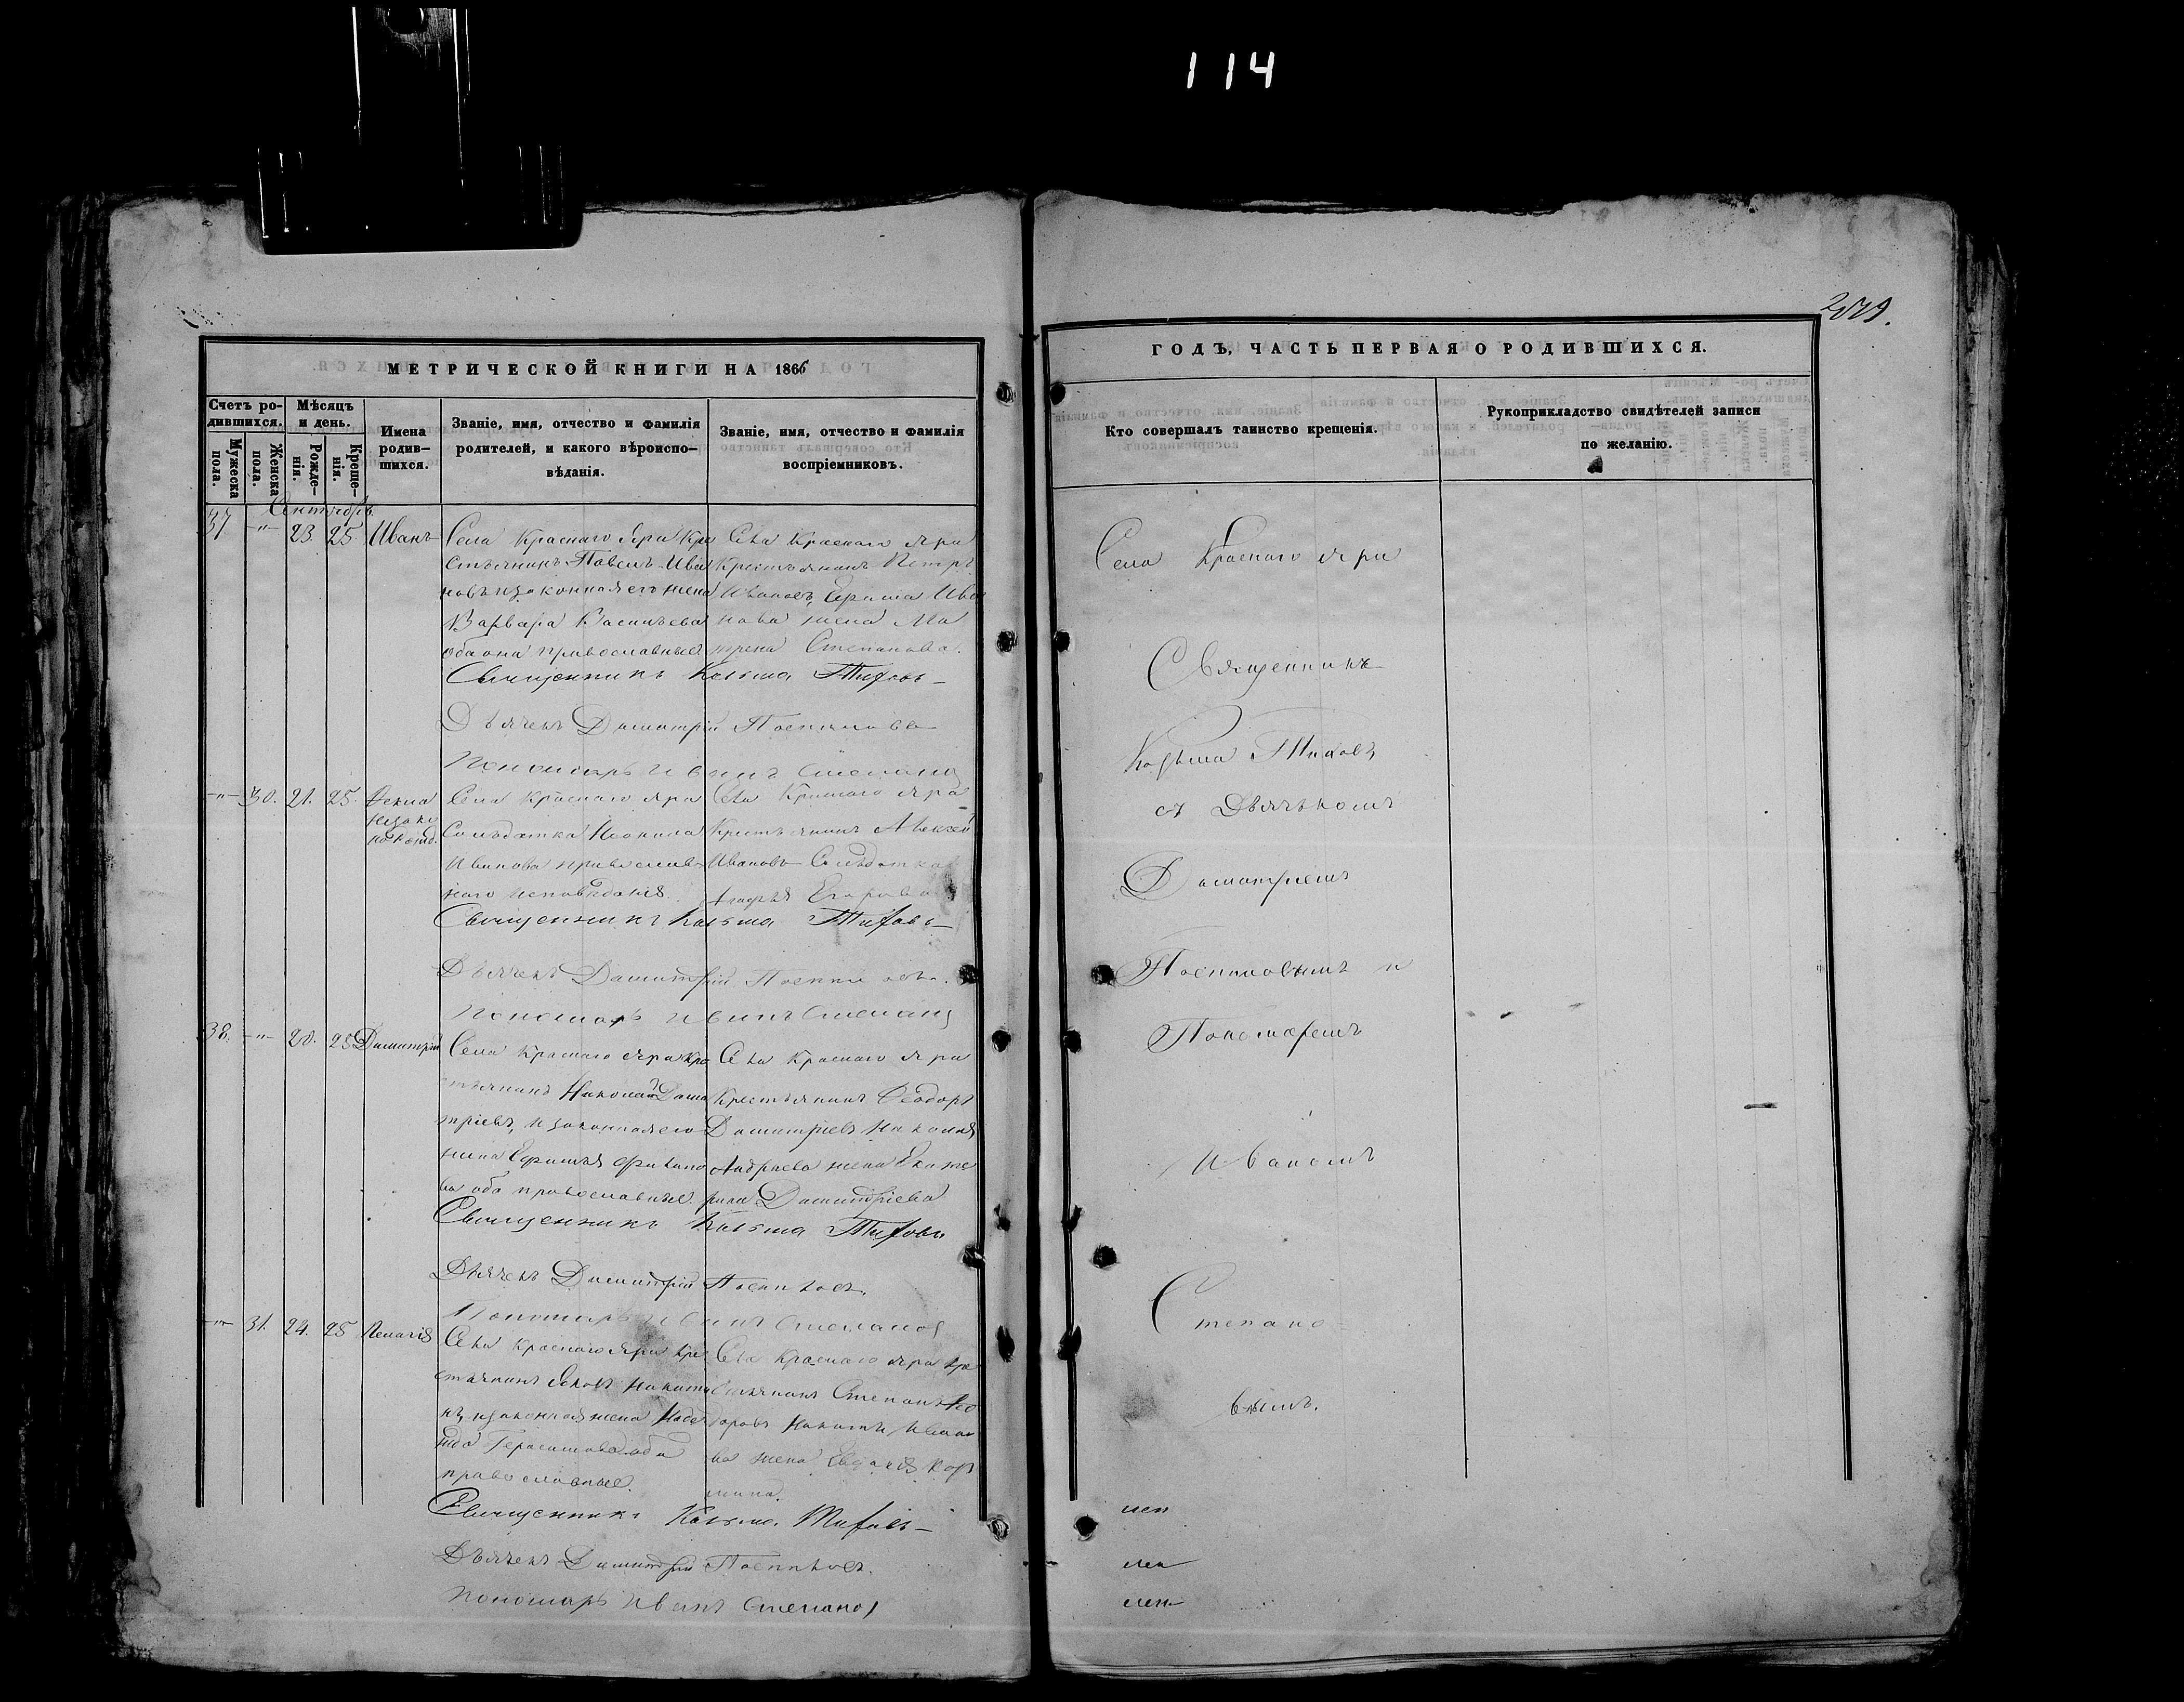 114
259.
МЕТРИЧЕСКОЙ КНИГИ НА 1866
Счетъ ро-
дившихся.
Мужеска
пола.
Женска
пола.
Мѣсяцъ
и день.
Рожде-
нія.
Креще-
нія.
Имена
родив-
шихся.
Званіе, имя, отчество и фамилія
родителей, и какого вѣроиспо-
вѣданія.
Званіе, имя, отчество и фамилія
воспріемниковъ.
Сентябрь
37. -"- 23. 25 Иванъ
Села Краснаго Яра Кре
стьянинъ Павелъ Ива
новъ и законная его жена
Варвара Васильева
оба они православные
Села Краснаго Яра
Крестьянинъ Петръ
Ивановъ, Ивa
нова жена Ма
трена Степанова.
Священникъ Козьма Титовъ
Дьячекъ Димитрій Поспеловъ
Пономарь Иванъ Степановъ
-"- 30. 21. 25. Фекла
незако
Села Краснаго Яра
Солдатка Неонила
Иванова православ-
наго исповѣданія.
Села Краснаго Яра
Крестьянинъ Алексей
Ивановъ Солдатка
Егорова
Священникъ Козьма Титовъ
Дьячекъ Димитрій Поспеловъ.
Пономарь Иванъ Степановъ
38. -"- 20. 25 Димитрій
Села Краснаго Яра Кре
стьянинъ Николай Дими
тріевъ, и законная его
жена
ва оба православные.
Села Краснаго Яра
Крестьянинъ Феодоръ
Димитріевъ Николая
Андреева жена Екате
рина Димитріева
Священникъ Козьма Титовъ
Дьячекъ Димитрій Поспеловъ.
Пономарь Иванъ Степановъ
-"- 31. 24. 25
Села Краснаго Яра Кре
стьянинъ Яковъ Никити
нъ, и законная жена Наде
жда Герасимова оба
православные.
Села Краснаго Яра Кре
стьянинъ Степанъ Фео
доровъ Никиты Ивано
ва жена
Священникъ Козьма Титовъ
Дьячекъ Димитрій Поспеловъ.
Пономарь Иванъ Степановъ
ГОДЪ, ЧАСТЬ ПЕРВАЯ О РОДИВШИХСЯ.
Кто совершалъ таинство крещенія.
Рукоприкладство свидѣтелей записи
по желанію.
Села Краснаго Яра
Священникъ
Козьма Титовъ
съ Дьячькомъ
Димитріемъ
Поспеловымъ и
Пономаремъ
Иваномъ
Степано
вымъ.